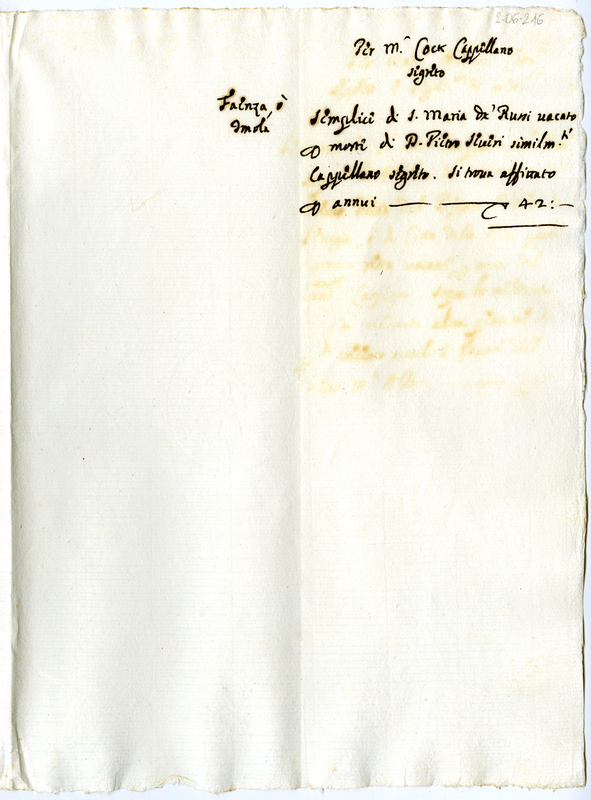 2-06-216
Per M.r Cock Cappellano
segreto
Faenza, ò
Imola
Semplice di S. Maria de' Russi vacato
p morte di D. Pietro similm.te
Cappellano segreto. Si trova affittato
p annui — 42:—